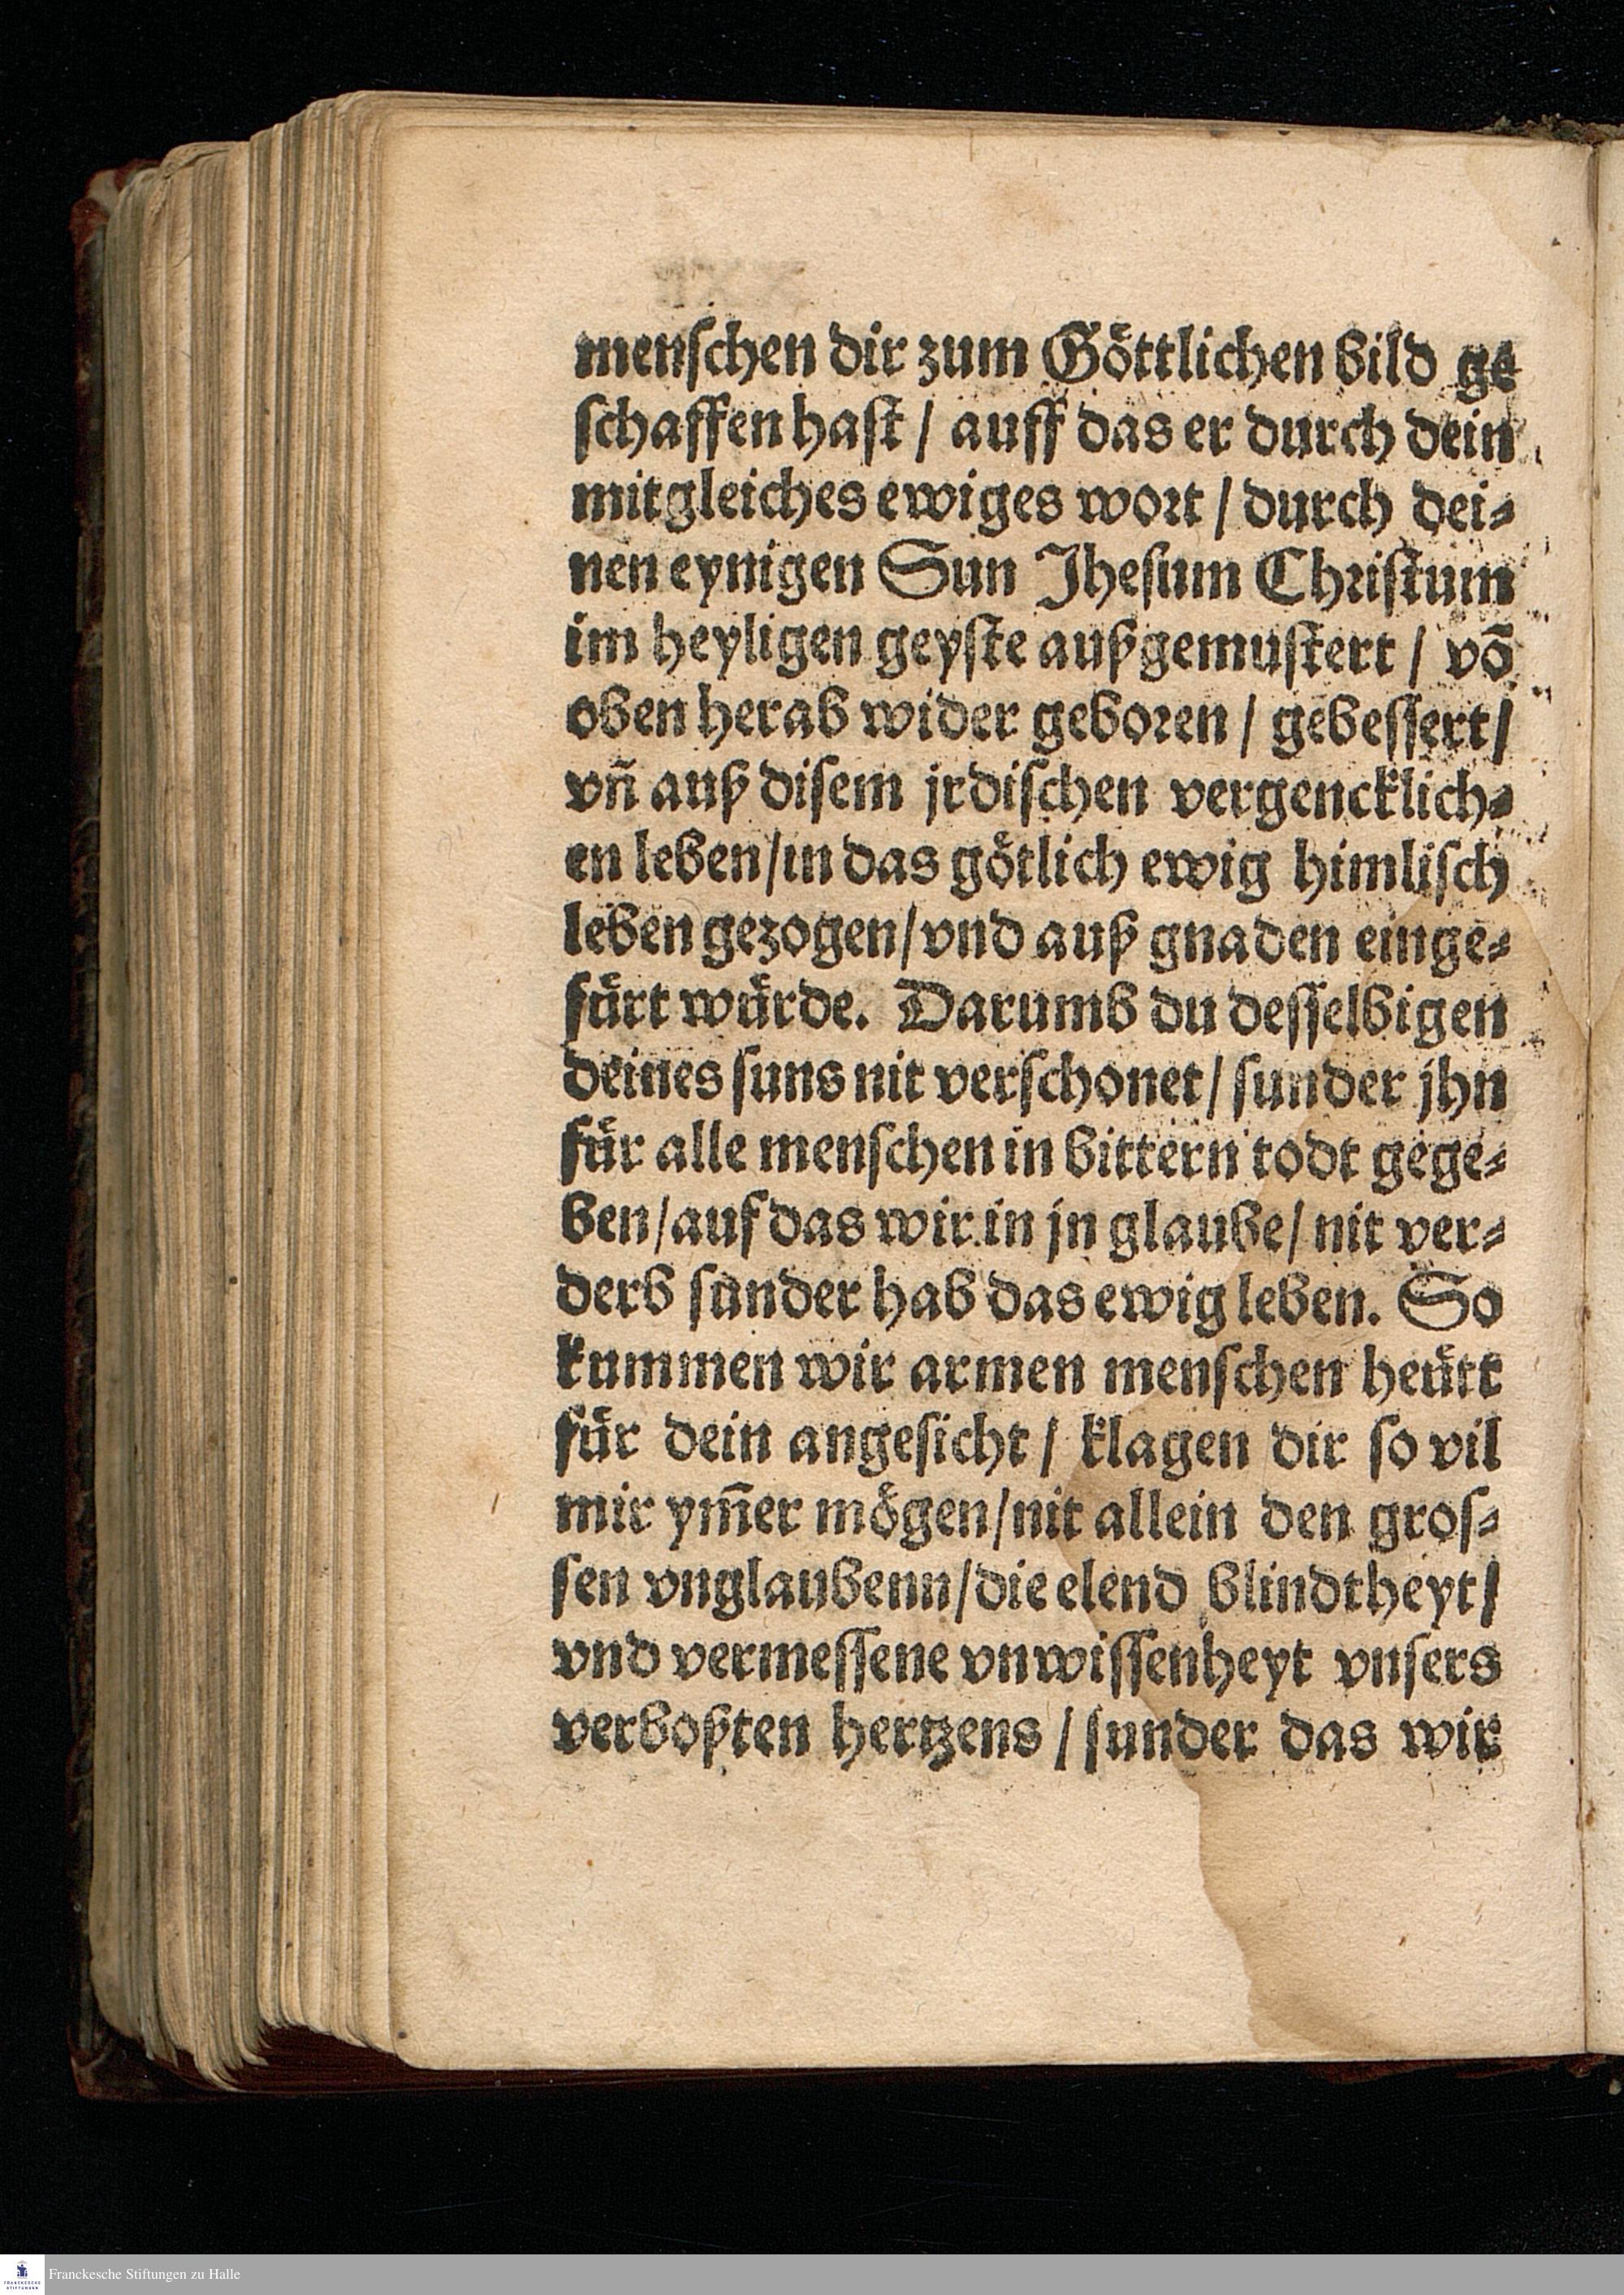 menschen dir zum Göttlichen bild ge
schaffen hast / auff das er durch dein
mitgleiches ewiges wort / durch dei⸗
nen eynigen Sun Jhesum Christum
im heyligen geyste außgemustert / võ
oben herab wider geboren / gebessert /
vñ auß disem jrdischen vergencklich⸗
en leben / in das götlich ewig himlisch
leben gezogen / vnd auß gnaden einge⸗
fürt würde. Darumb du desselbigen
deines suns nit verschonet / sunder jhn
für alle menschen in bittern todt gege⸗
ben / auf das wir in jn glaube / nit ver⸗
derb sunder hab das ewig leben. So
kummen wir armen menschen heütt
für dein angesicht / klagen dir so vil
mir ym̃er mögen / nit allein den gros⸗
sen vnglaubenn / die elend blindtheyt /
vnd vermessene vnwissenheyt vnsers
verboßten hertzens / sunder das wir
Franckesche Stiftungen zu Halle